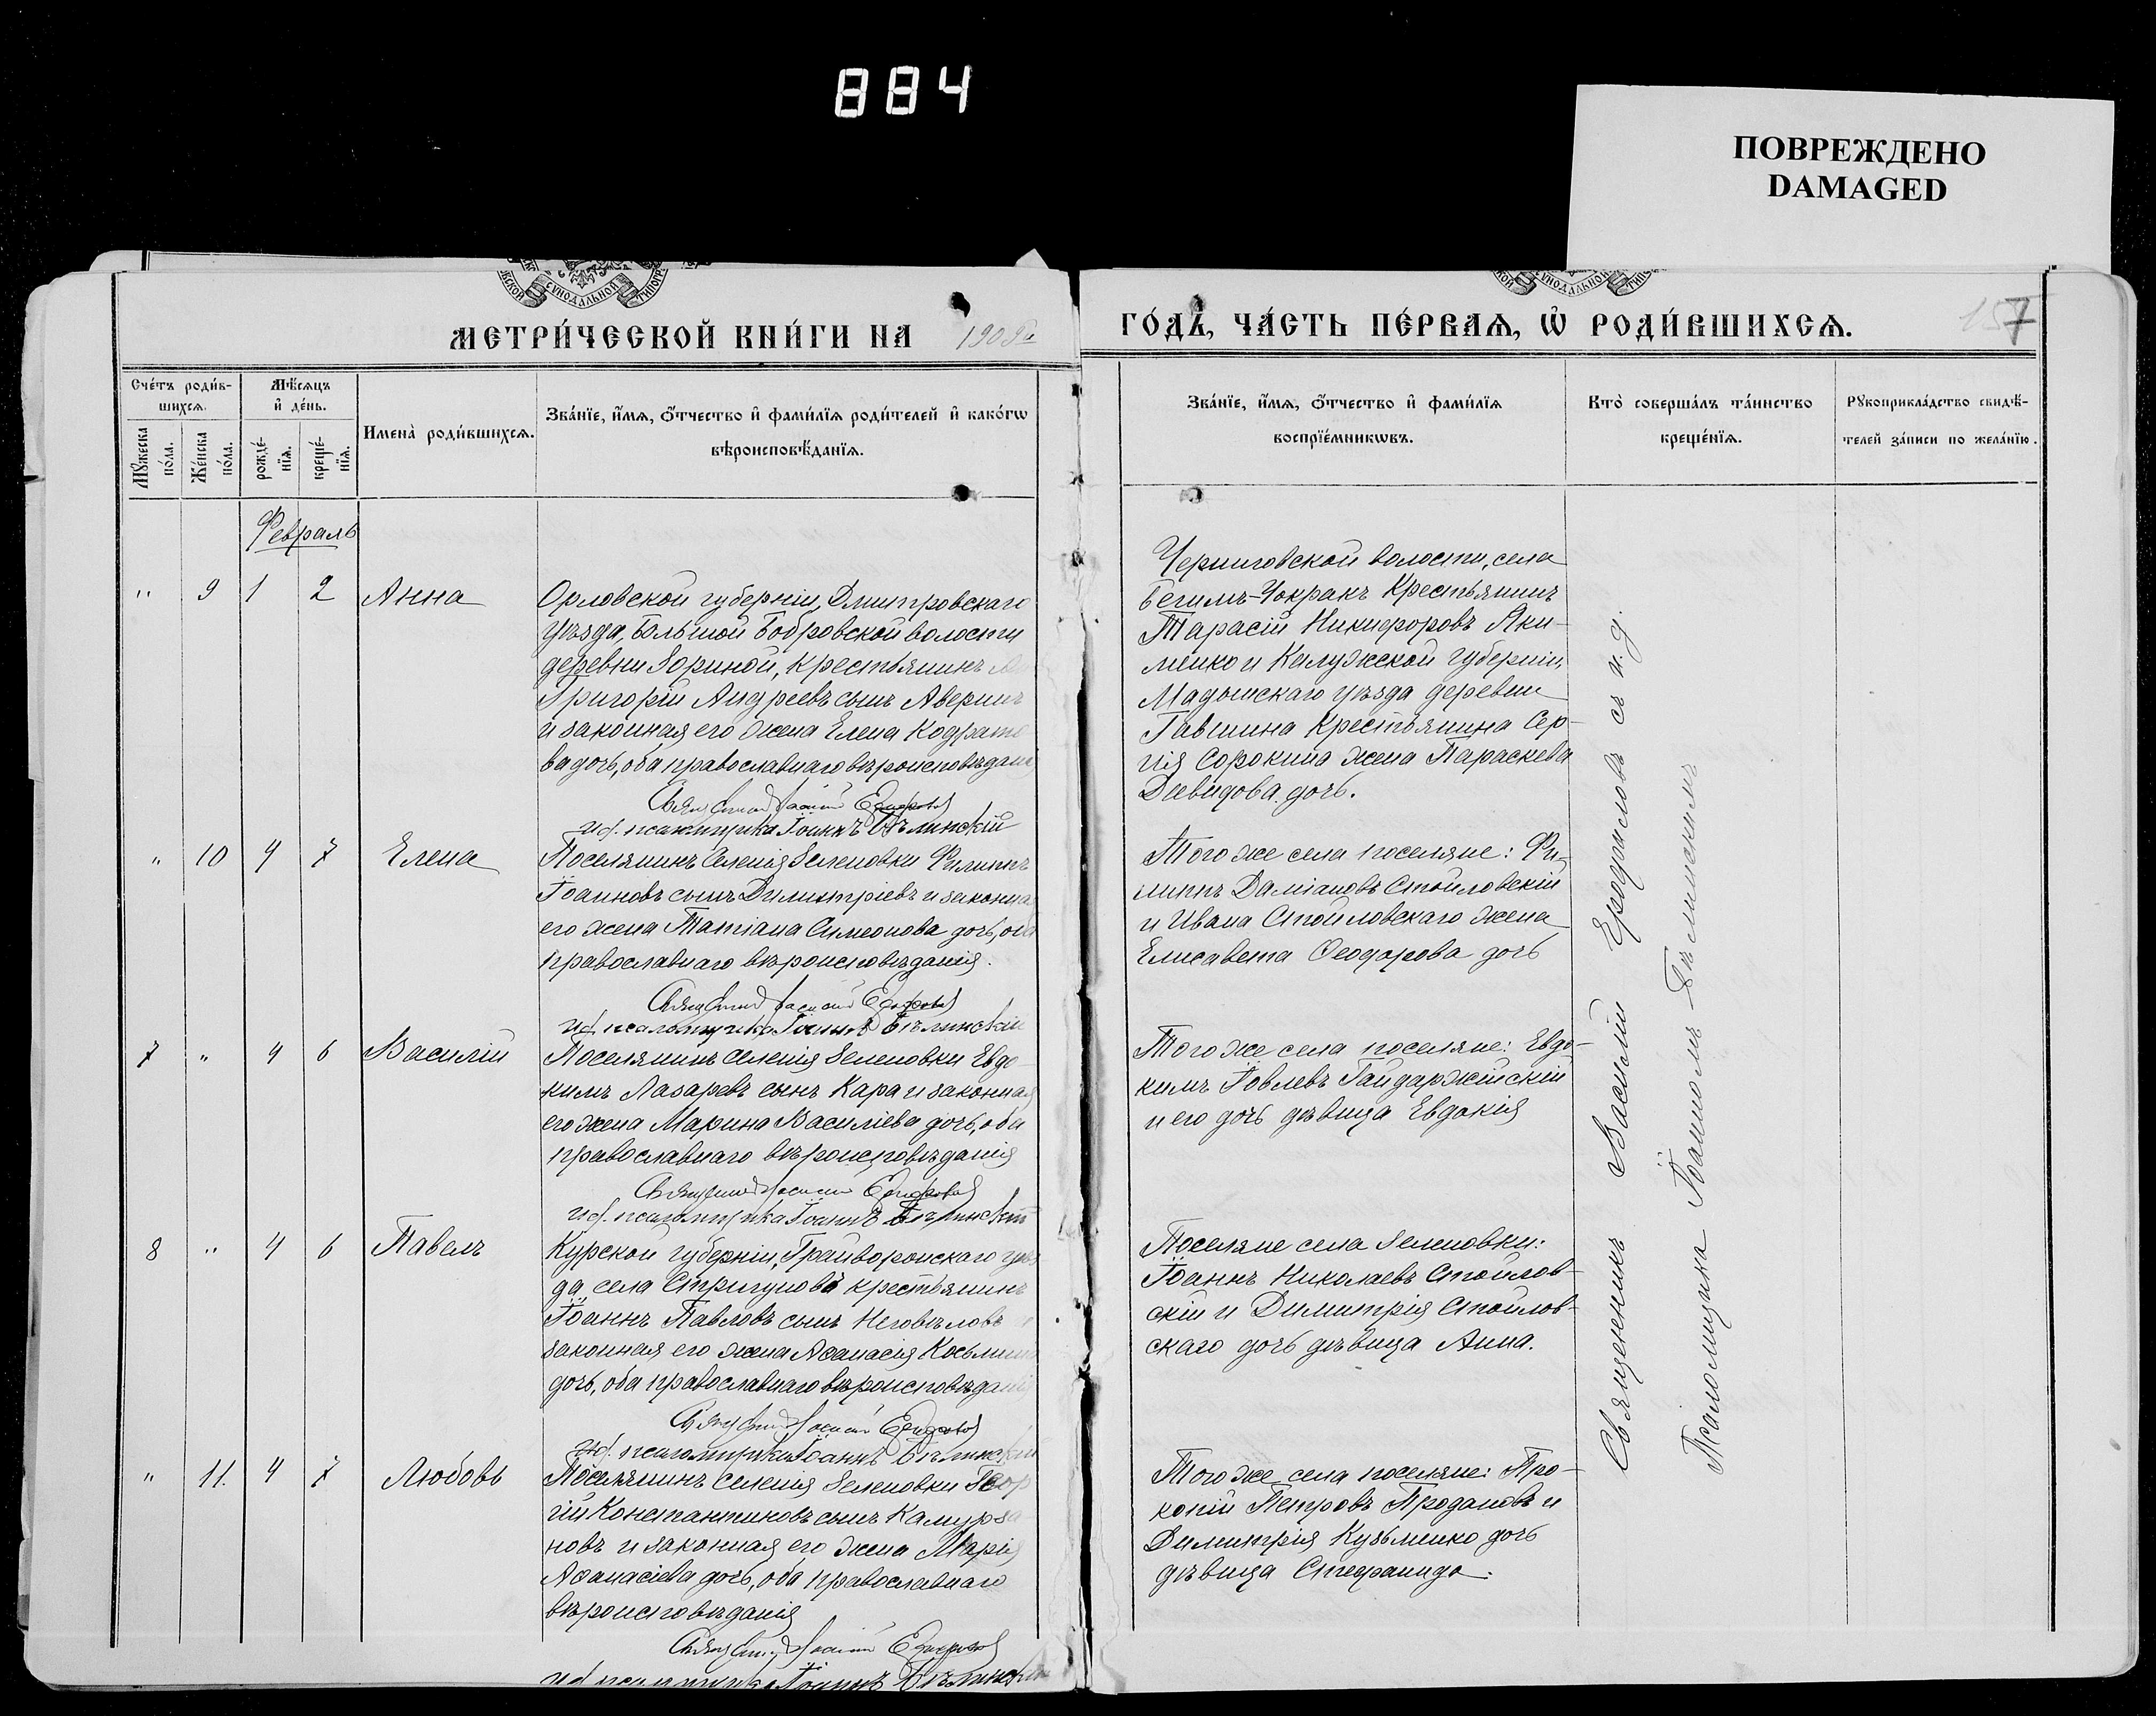 884
ПОВРЕЖДЕНО
DAMAGED
СУНОДАЛЬНОЙ
СУНОДАЛЬНОЙ
МЕТРИ́ЧЕСКОЙ КНИ́ГИ НА 1909 го
ГО́ДЪ, ЧА́СТЬ ПЕ́РВАѦ, Ѽ РОДИ́ВШИХСѦ.
157
Сче́тъ роди́в-
шихсѧ.
Мѣ́сяцъ
и҆ де́нь.
Мꙋ́жеска
по́ла.
Же́нска
по́ла.
рожде́-
нїѧ.
креще́-
нїѧ.
Имена̀ роди́вшихсѧ.
Зва́нїе, и҆́мѧ, ѻ҆́тчество и҆ фами́лїѧ роди́телей и҆ како́гѡ
вѣроисповѣ́данїѧ.
Зва́нїе, и҆́мѧ, ѻ҆́тчество и҆ фами́лїѧ
воспрїе́мникѡвъ.
Кто̀ соверша́лъ та́инство
креще́нїѧ.
Рꙋкоприкла́дство свидѣ́-
телей за́писи по жела́нїю.
Февраль
" 9 1 2 Анна
Орловской губерніи, Дмитровскаго
уѣзда, Большой Бобровской волости
деревни Зориной, крестьянинъ
Григорій Андреевъ сынъ Аверинъ
и законная его жена Елена Кодрато
ва дочь, оба православнаго вѣроисповѣдані
Священникъ Василій
и. д. псаломщика Іоаннъ Бѣлинскій
Черниговской волости, села
Бегимъ-Чокракъ Крестьянинъ
Тарасій Никифоровъ Яки-
менко и Калужской губерніи,
Мадынскаго уѣзда деревни
Гавшина Крестьянина Сер-
гія Сорокина жена Параскева
Давидова дочь.
" 10 4 7 Елена
Поселянинъ Селенія Зеленовки Филиппъ
Іоанновъ сынъ Димитріевъ и законна
его жена Татіана Симеонова дочь, оба
православнаго вѣроисповѣданія.
Священникъ Василій
и. д. псаломщика Іоаннъ Бѣлинскій
Того же села поселяне: Фи-
липпъ Даміановъ Стойловскій
и Ивана Стойловскаго жена
Елисавета Ѳеодорова дочь
7 " 4 6 Василій
Поселянинъ селенія Зеленовки Евдо-
кимъ Лазаревъ сынъ Кара и законная
его жена Марина Василіева дочь, оба
православнаго вѣроисповѣданія
Священникъ Василій
и. д. псаломщика Іоаннъ Бѣлинскій
Того же села поселяне: Евдо-
кимъ Іовлевъ Гайдаржійскій
и его дочь дѣвица Евдокія
8 " 4 6 Павелъ
Курской губерніи, Грайворонскаго уѣз
да, села Стригуновъ крестьянинъ
Іоаннъ Павловъ сынъ Неговѣловъ
законная его жена Аѳанасія Косьмина
дочь, оба православнаго вѣроисповѣдані
Священникъ Василій
и. д. псаломщика Іоаннъ Бѣлинскій
Поселяне села Зеленовки:
Іоаннъ Николаевъ Стойлов-
скій и Димитрія Стойлов-
скаго дочь дѣвица Анна.
" 11. 4 7 Любовь
Поселянинъ селенія Зеленовки Геор
гій Константиновъ сынъ Камурза
новъ и законная его жена Марія
Аѳанасіева дочь, оба православнаго
вѣроисповѣданія
Священникъ Василій
и. д. псаломщика Іоаннъ Бѣлинскій
Того же села поселяне: Про-
копій Петровъ Продановъ и
Димитрія Кузьменко дочь
дѣвица Стефанида.
Священникъ Василій съ и. д.
Псаломщика Іоанномъ Бѣлинскимъ